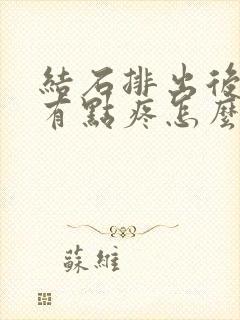 結石排出後
有點疼怎麼
蘇維